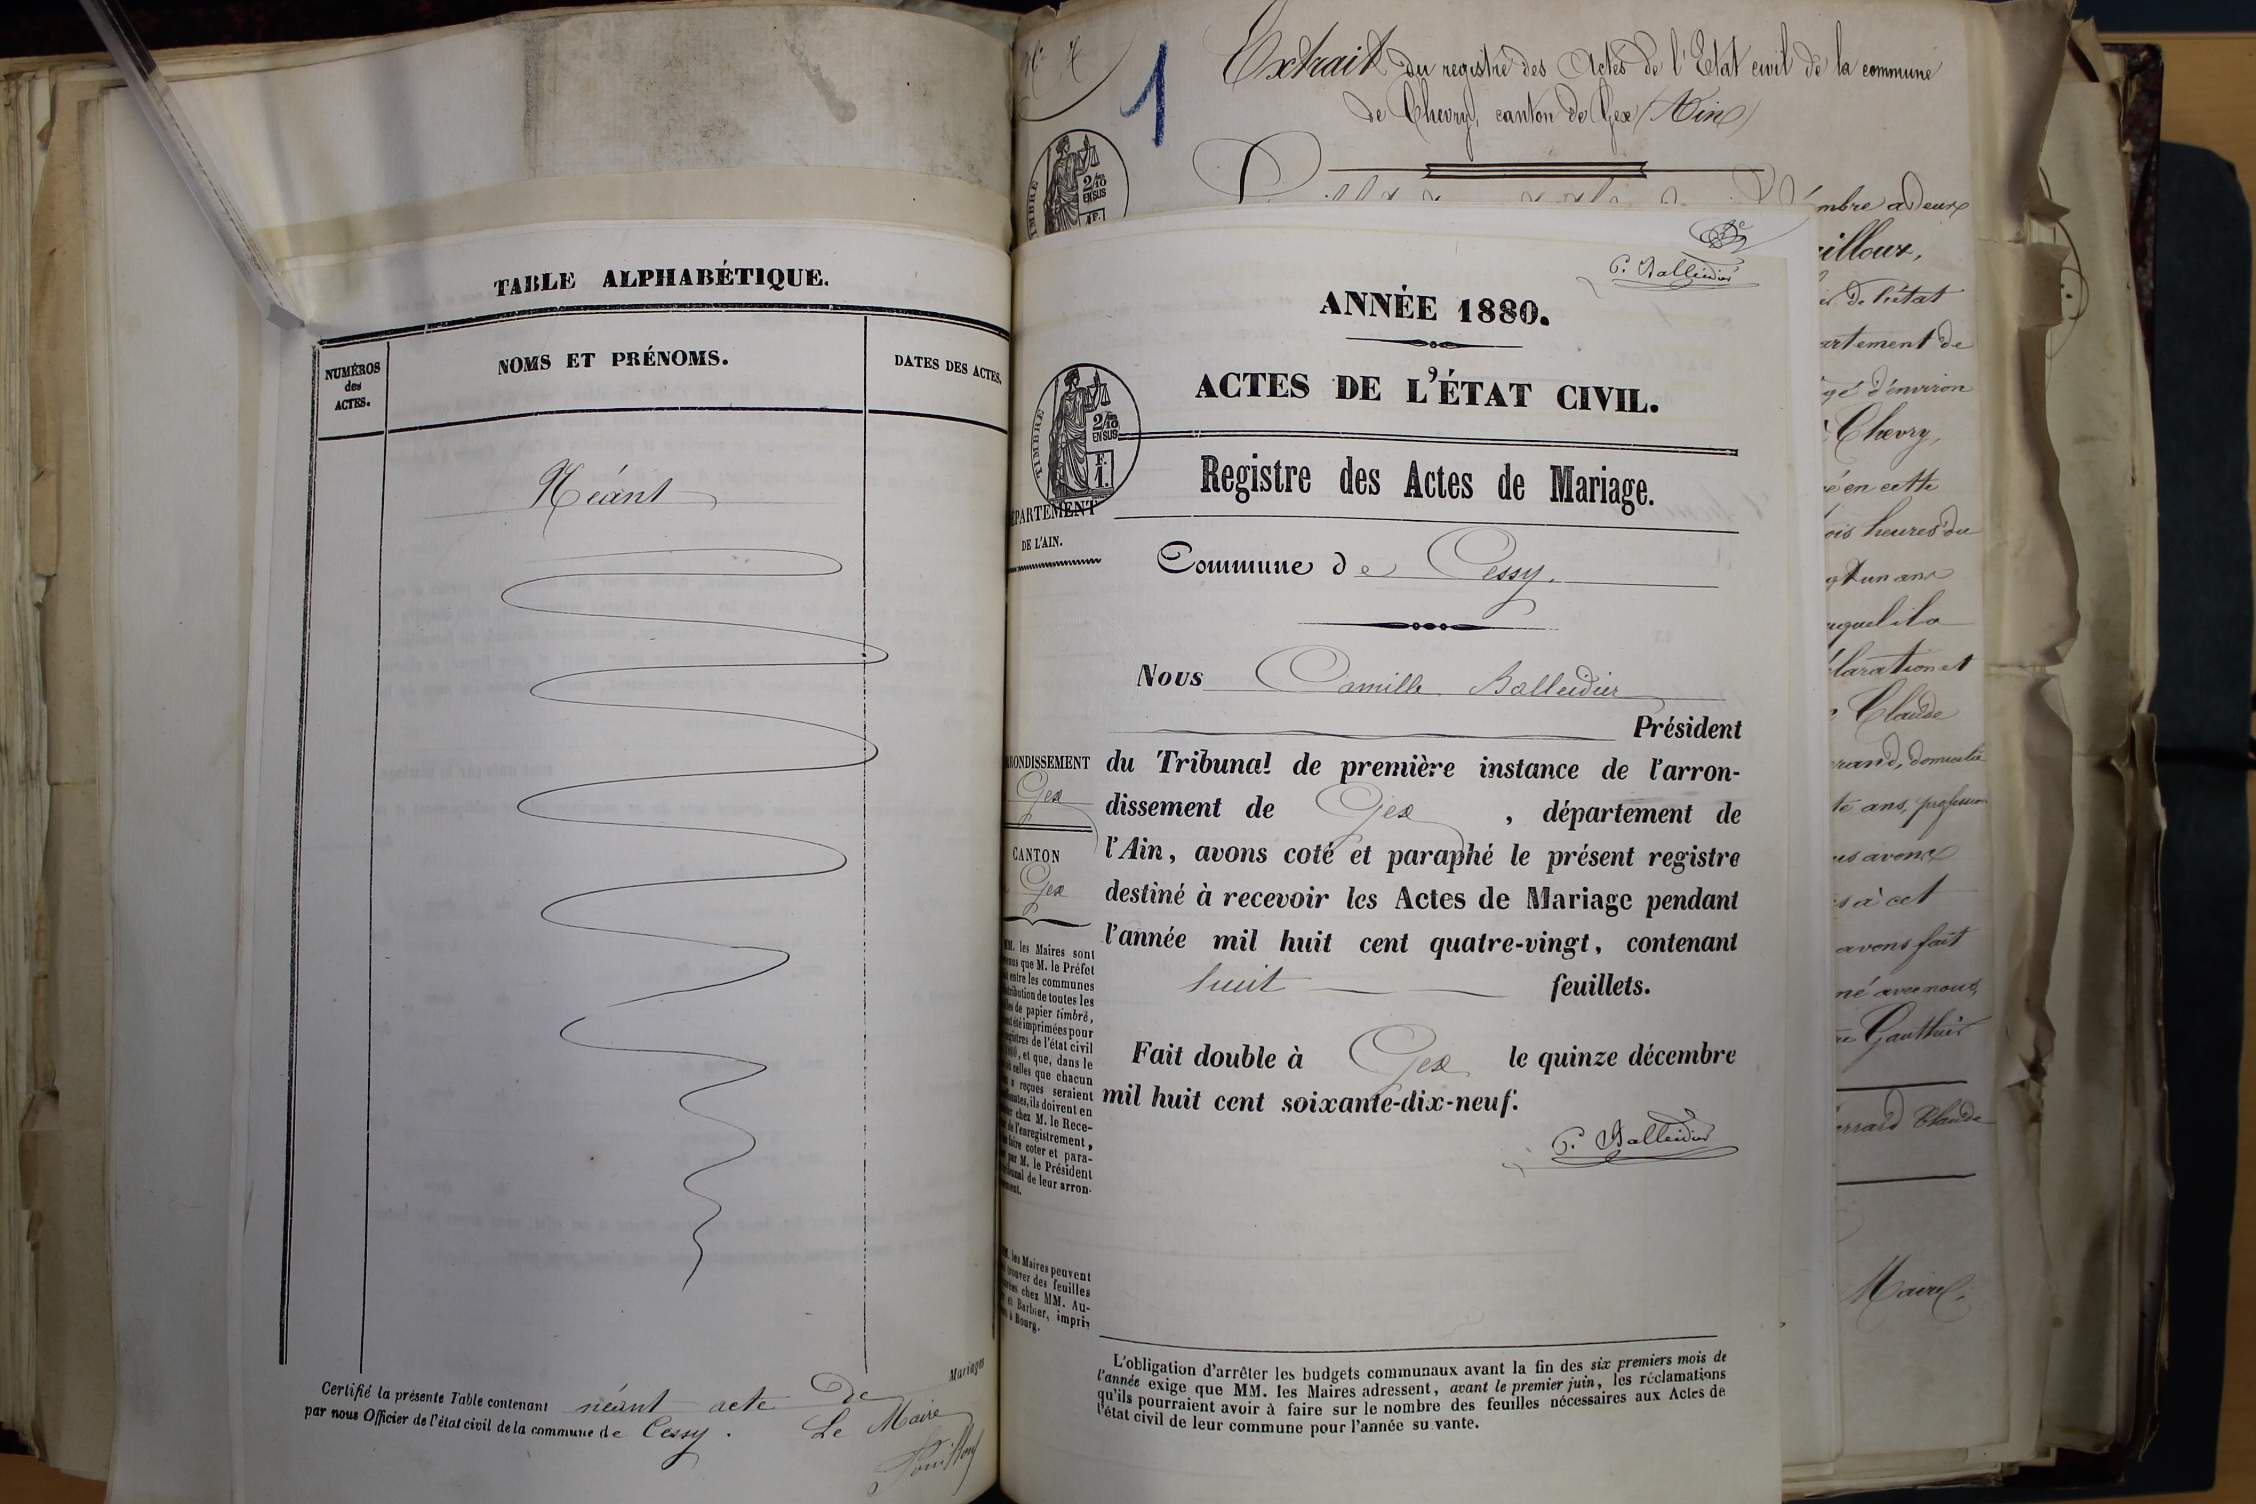 TABLE ALPHABÉTIQUE.
NUMÉROS
des
ACTES.
NOMS ET PRÉNOMS.
DATES DES ACTES.
Néant
Mariages
Certifié la présente Table contenant néant acte de
par nous Officier de l'état civil de la commune de Cessy.
Le Maire
1
Extrait du registre des Actes de l'Etat civil de la commune
de Chevry, canton de Gex (Ain)
TIMBRE
2/10
EN SUS
1 F.
mbre a deux
illoux,
de l'état
artement de
gé d'environ
Chevry,
é en cette
ois heures du
gt un ans
uquel il a
claration et
Claude
rand, domicilié
te ans, profession
us avons
s à cet
avons fait
né avec nous,
Gauthier
errard Claude
Maire.
C. Balleidier
ANNÉE 1880.
ACTES DE L'ÉTAT CIVIL.
TIMBRE
2/10
EN SUS
F.
1.
Registre des Actes de Mariage.
ÉPARTEMENT
DE L'AIN.
Commune de Cessy.
Nous Camille Balleidier
Président
du Tribunal de première instance de l'arron-
dissement de Gex, département de
l'Ain, avons coté et paraphé le présent registre
destiné à recevoir les Actes de Mariage pendant
l'année mil huit cent quatre-vingt, contenant
huit feuillets.
Fait double à Gex le quinze décembre
mil huit cent soixante-dix-neuf.
C. Balleidier
RONDISSEMENT
Gex
CANTON
Gex
MM. les Maires sont
que M. le Préfet
entre les communes
tribution de toutes les
de papier timbré,
été imprimées pour
gistres de l'état civil
, et que, dans le
celles que chacun
reçues seraient
, ils doivent en
chez M. le Rece-
de l'enregistrement,
faire coter et para-
par M. le Président
de leur arron-
MM. les Maires peuvent
trouver des feuilles
chez MM. Au-
et Barbier, impri-
à Bourg.
L'obligation d'arrêter les budgets communaux avant la fin des six premiers mois de
l'année exige que MM. les Maires adressent, avant le premier juin, les réclamations
qu'ils pourraient avoir à faire sur le nombre des feuilles nécessaires aux Actes de
l'état civil de leur commune pour l'année su vante.